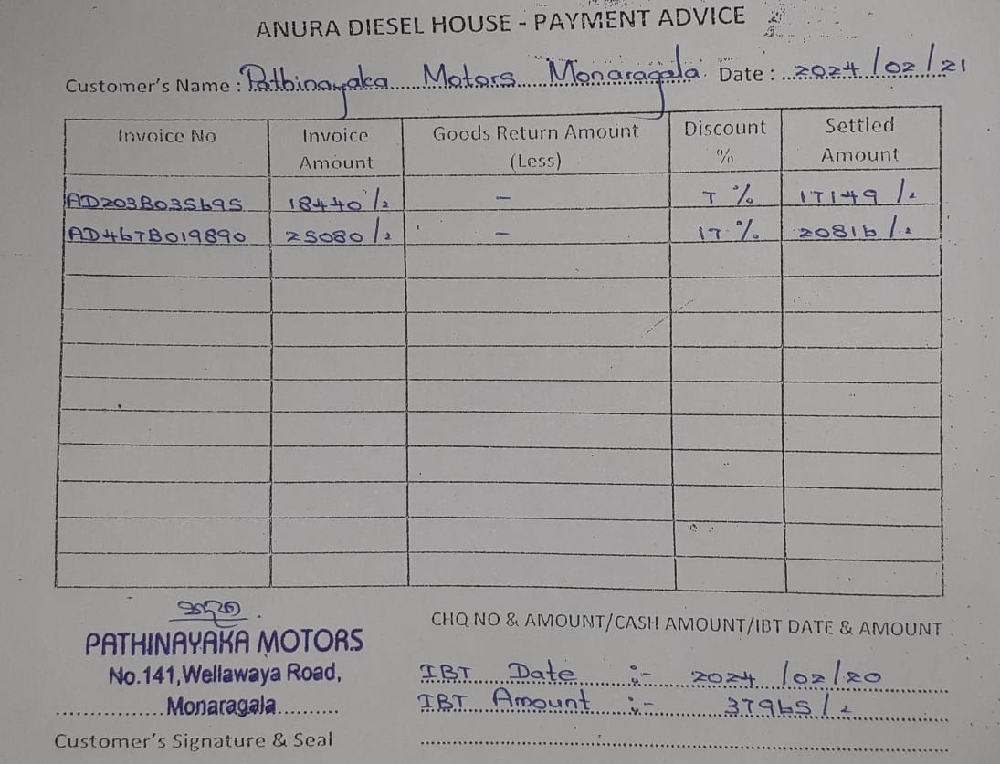 ANURA DIESEL HOUSE - PAYMENT ADVICE
Customer's Name : Pathinayaka Motors Monaragala. Date : 2024/02/21
Invoice No Invoice Amount Goods Return Amount (Less) Discount % Settled Amount
AD203B035695 18440/= - 7% 17149/=
AD467B019890 25080/= - 17% 20816/=
CHQ NO & AMOUNT/CASH AMOUNT/IBT DATE & AMOUNT
PATHINAYAKA MOTORS
No.141,Wellawaya Road,
Monaragala
IBT Date :- 2024/02/20
IBT Amount :- 37965/=
Customer's Signature & Seal